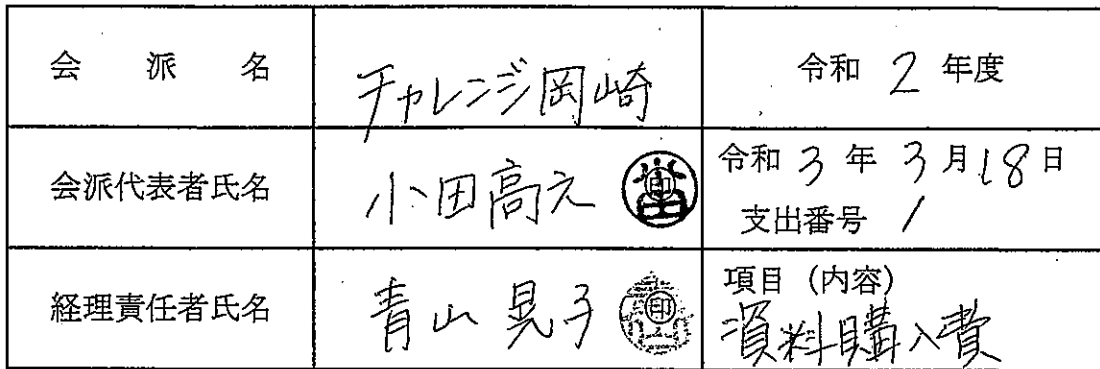 会派名 チャレンジ岡崎 令和 2 年度
会派代表者氏名 小田高之 印 令和 3 年 3 月 18 日
支出番号 1
経理責任者氏名 青山晃子 印 項目（内容）
資料購入費